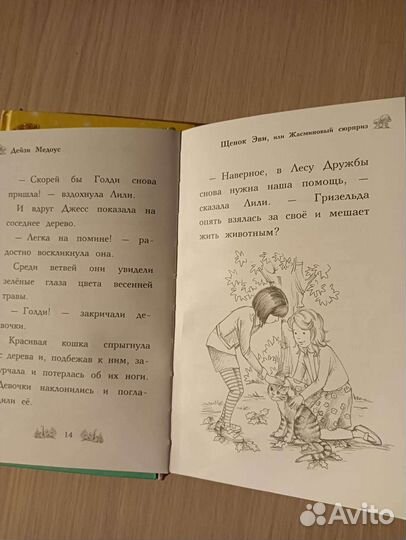 Дейзи Медоус
— Скорей бы Голди снова
пришла! — вздохнула Лили.
И вдруг Джесс показала на
соседнее дерево.
— Легка на помине! — ра-
достно воскликнула она.
Среди ветвей они увидели
зелёные глаза цвета весенней
травы.
— Голди! — закричали де-
вочки.
Красивая кошка спрыгнула
с дерева и, подбежав к ним, за-
урчала и потерлась об их ноги.
Девочки наклонились и погла-
дили её.
14
Щенок Эви, или Жасминовый сюрприз
— Наверное, в Лесу Дружбы
снова нужна наша помощь, —
сказала Лили. — Гризельда
опять взялась за своё и мешает
жить животным?
Avito